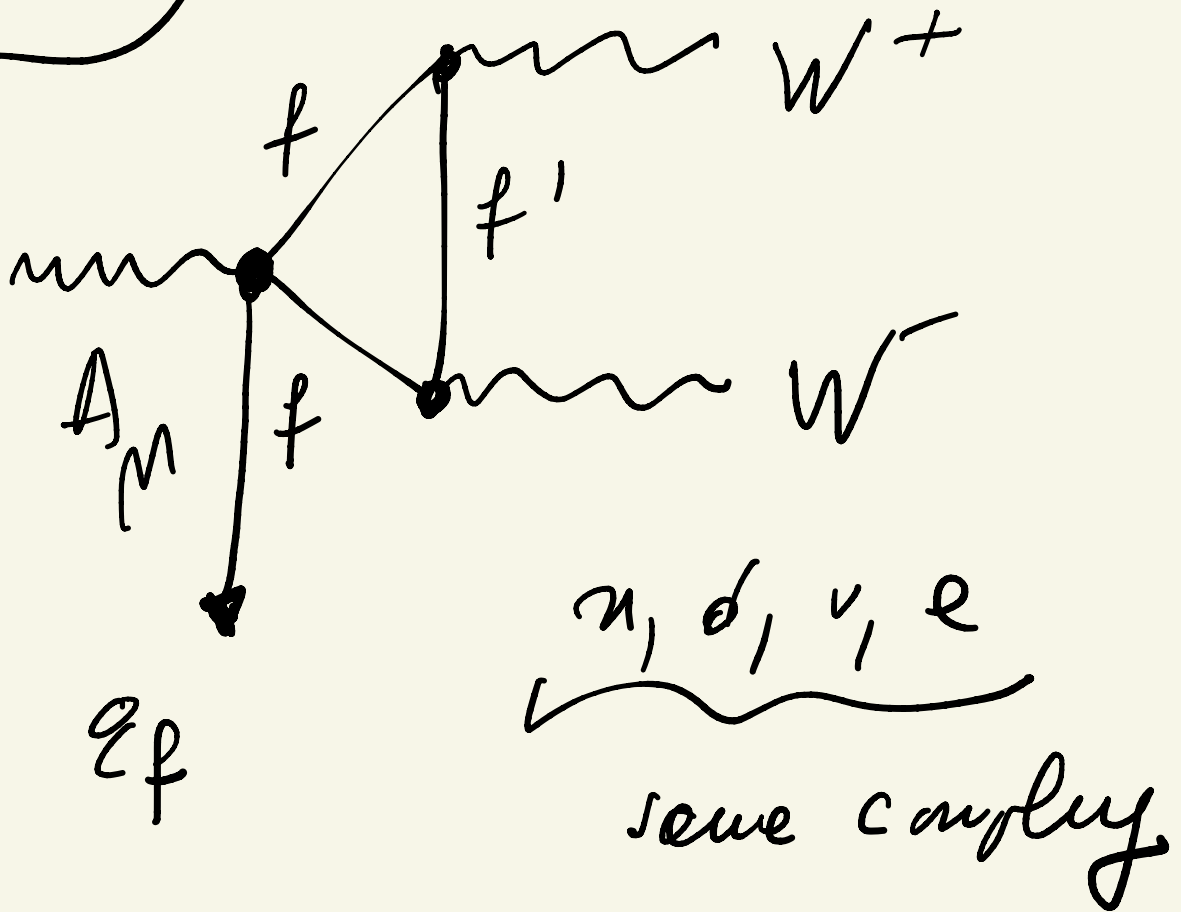 W⁺
f
f'
A_μ
f
W⁻
u, d, ν, e
q_f
same coupling